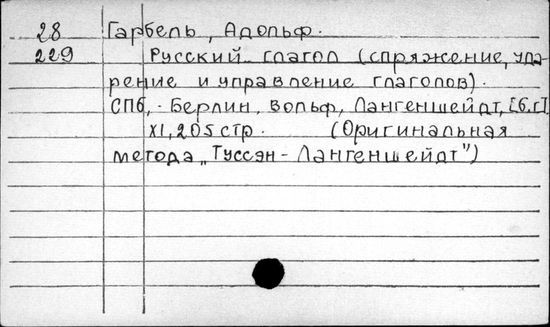 28 Гарбель, Адольф.
229 Русский глагол (спряжение, уда-
рение и управление глаголов).
СПб, - Берлин, Вольф, Лангеншейдт, [б.г]
XI, 205 стр. (Оригинальная
метода „Туссэн - Лангеншейдт")